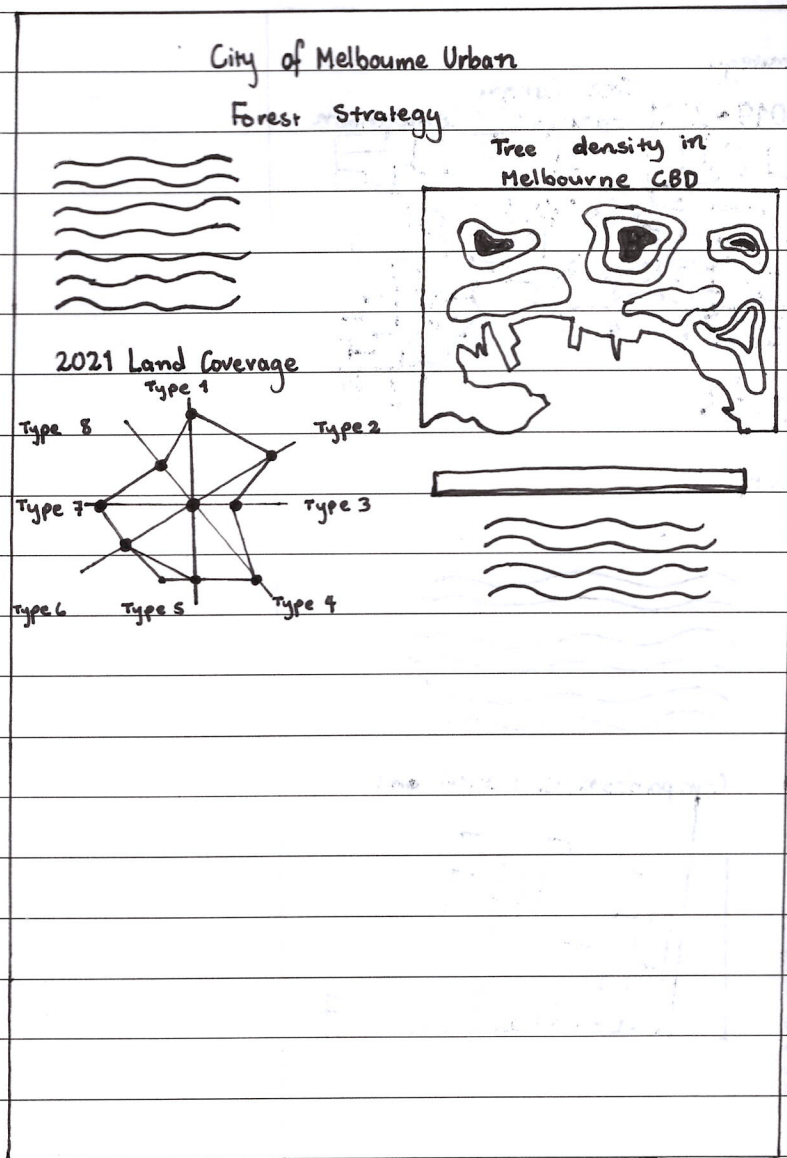 City of Melbourne Urban
Forest Strategy
Tree density in
Melbourne CBD
2021 Land Coverage
Type 1
Type 8
Type 2
Type 7
Type 3
Type 6
Type 5
Type 4